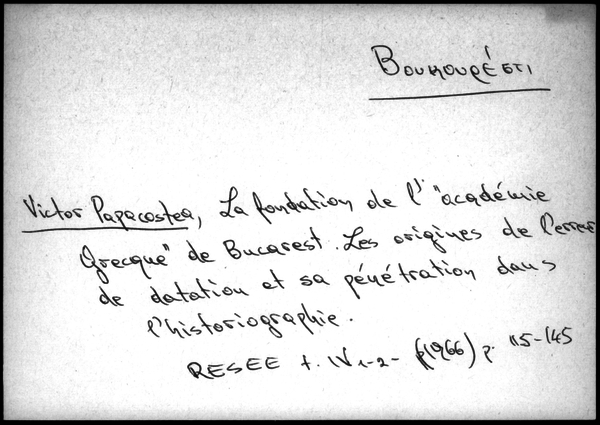 Βουκουρέστι
Victor Papacostea, La fondation de l' "académie
Grecque" de Bucarest. Les origines de l'erreur
de datation et sa pénétration dans
l'historiographie.
RESEE t. IV 1-2- (1966) p. 115-145